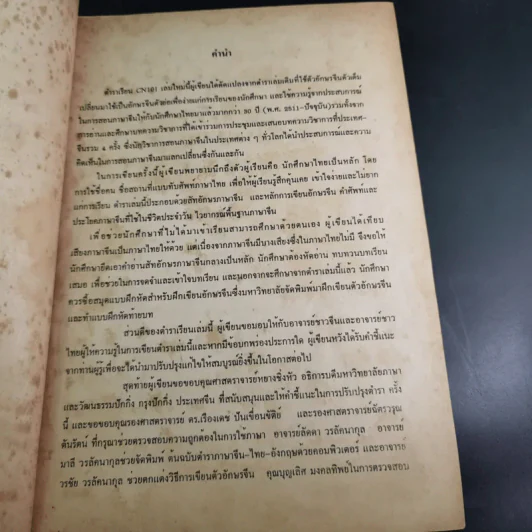 คำนำ
ตำราเรียน CN101 เล่มใหม่นี้ผู้เขียนได้ดัดแปลงจากตำราเล่มเดิมที่ใช้ตัวอักษรจีนตัวเต็ม
เปลี่ยนมาใช้เป็นอักษรจีนตัวย่อเพื่อง่ายแก่การเรียนของนักศึกษา และใช้ความรู้จากประสบการณ์
ในการสอนภาษาจีนให้กับนักศึกษาไทยมาแล้วมากกว่า 30 ปี (พ.ศ. 2511-ปัจจุบัน)รวมทั้งจาก
การอ่านและศึกษาบทความวิชาการที่ได้เข้าร่วมการประชุมและเสนอบทความวิชาการที่ประเทศ-
จีนรวม 4 ครั้ง ซึ่งนักวิชาการสอนภาษาจีนในประเทศต่าง ๆ ทั่วโลกได้นำประสบการณ์และความ
คิดเห็นในการสอนภาษาจีนมาแลกเปลี่ยนซึ่งกันและกัน
ในการเขียนครั้งนี้ผู้เขียนพยายามนึกถึงตัวผู้เรียนคือ นักศึกษาไทยเป็นหลัก โดย
การใช้ชื่อคน ชื่อสถานที่แบบทับศัพท์ภาษาไทย เพื่อให้ผู้เรียนรู้สึกคุ้นเคย เข้าใจง่ายและไม่ยาก
แก่การเรียน ตำราเล่มนี้ประกอบด้วยสัทอักษรภาษาจีน และหลักการเขียนอักษรจีน คำศัพท์และ
ประโยคภาษาจีนที่ใช้ในชีวิตประจำวัน ไวยากรณ์พื้นฐานภาษาจีน
เพื่อช่วยนักศึกษาที่ไม่ได้มาเข้าเรียนสามารถศึกษาด้วยตนเอง ผู้เขียนได้เทียบ
เสียงภาษาจีนเป็นภาษาไทยให้ด้วย แต่เนื่องจากภาษาจีนมีบางเสียงซึ่งในภาษาไทยไม่มี จึงขอให้
นักศึกษายึดเอาคำอ่านสัทอักษรภาษาจีนกลางเป็นหลัก นักศึกษาต้องหัดอ่าน ทบทวนบทเรียน
เสมอ เพื่อช่วยในการจดจำและเข้าใจบทเรียน และนอกจากจะศึกษาจากตำราเล่มนี้แล้ว นักศึกษา
ควรซื้อสมุดแบบฝึกหัดสำหรับฝึกเขียนอักษรจีนซึ่งมหาวิทยาลัยจัดพิมพ์มาฝึกเขียนตัวอักษรจีน
และทำแบบฝึกหัดท้ายบท
ส่วนดีของตำราเรียนเล่มนี้ ผู้เขียนขอมอบให้กับอาจารย์ชาวจีนและอาจารย์ชาว
ไทยผู้ให้ความรู้ในการเขียนตำราเล่มนี้และหากมีข้อบกพร่องประการใด ผู้เขียนหวังได้รับคำชี้แนะ
จากท่านผู้รู้เพื่อจะได้นำมาปรับปรุงแก้ไขให้สมบูรณ์ยิ่งขึ้นในโอกาสต่อไป
สุดท้ายผู้เขียนขอขอบคุณศาสตราจารย์หยางชิ่งหัว อธิการบดีมหาวิทยาลัยภาษา
และวัฒนธรรมปักกิ่ง กรุงปักกิ่ง ประเทศจีน ที่สนับสนุนและให้คำชี้แนะในการปรับปรุงตำรา ครั้ง
นี้ และขอขอบคุณรองศาสตราจารย์ ดร.เรืองเดช ปันเขื่อนขัติย์ และรองศาสตราจารย์ฉัตรวรุณ
ตันรัตน์ ที่กรุณาช่วยตรวจสอบความถูกต้องในการใช้ภาษา อาจารย์ลัดดา วรลัคนากุล อาจารย์
มาลี วรลัคนากุลช่วยจัดพิมพ์ ต้นฉบับตำราภาษาจีน-ไทย-อังกฤษด้วยคอมพิวเตอร์ และอาจารย์
วรชัย วรลัคนากุล ช่วยตกแต่งวิธีการเขียนตัวอักษรจีน คุณบุญเลิศ มงคลทิพย์ในการตรวจสอบ